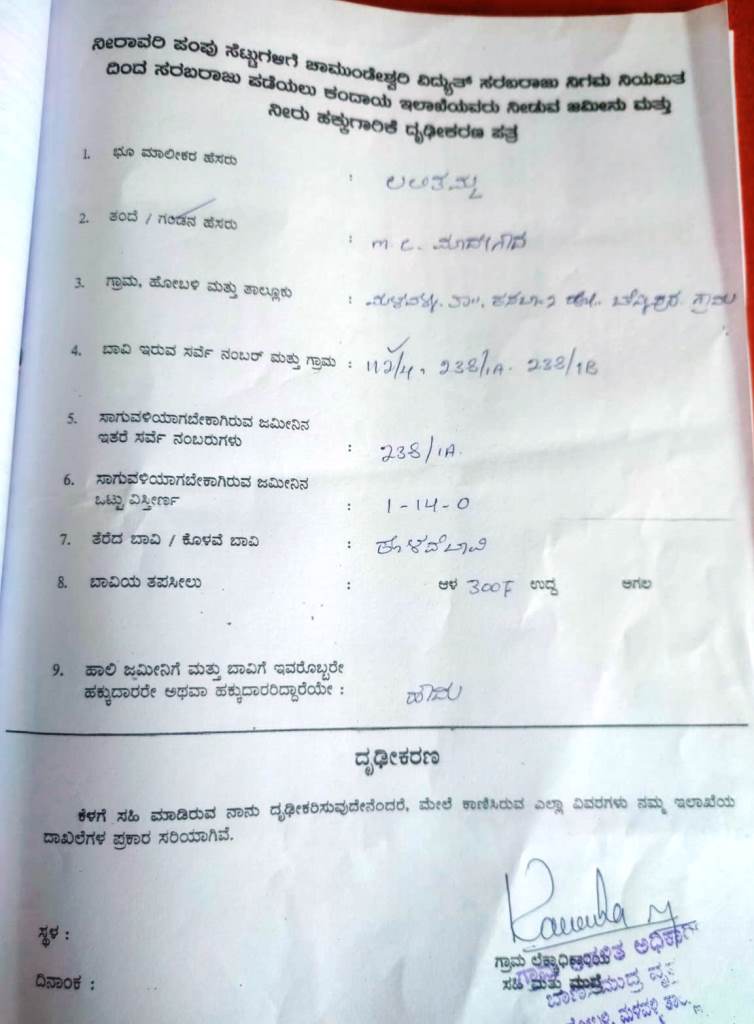 ನೀರಾವರಿ ಪಂಪು ಸೆಟ್ಟುಗಳಿಗೆ ಚಾಮುಂಡೇಶ್ವರಿ ವಿದ್ಯುತ್ ಸರಬರಾಜು ನಿಗಮ ನಿಯಮಿತ
ದಿಂದ ಸರಬರಾಜು ಪಡೆಯಲು ಕಂದಾಯ ಇಲಾಖೆಯವರು ನೀಡುವ ಜಮೀನು ಮತ್ತು
ನೀರು ಹಕ್ಕುಗಾರಿಕೆ ದೃಢೀಕರಣ ಪತ್ರ
1. ಭೂ ಮಾಲೀಕರ ಹೆಸರು : ಲಲಿತಮ್ಮ
2. ತಂದೆ / ಗಂಡನ ಹೆಸರು : M.C. ಮಾದೇಗೌಡ
3. ಗ್ರಾಮ, ಹೋಬಳಿ ಮತ್ತು ತಾಲ್ಲೂಕು : ಮಳವಳ್ಳಿ. ತಾ||, ಕಸಬಾ-2 ಹೋ. ಗ್ರಾಮ
4. ಬಾವಿ ಇರುವ ಸರ್ವೆ ನಂಬರ್ ಮತ್ತು ಗ್ರಾಮ : 112/4, 238/1A. 238/1B
5. ಸಾಗುವಳಿಯಾಗಬೇಕಾಗಿರುವ ಜಮೀನಿನ
ಇತರೆ ಸರ್ವೆ ನಂಬರುಗಳು : 238/1A.
6. ಸಾಗುವಳಿಯಾಗಬೇಕಾಗಿರುವ ಜಮೀನಿನ
ಒಟ್ಟು ವಿಸ್ತೀರ್ಣ : 1-14-0
7. ತೆರೆದ ಬಾವಿ / ಕೊಳವೆ ಬಾವಿ : ಕೊಳವೆಬಾವಿ
8. ಬಾವಿಯ ತಪಸೀಲು : ಆಳ 300F ಉದ್ದ ಅಗಲ
9. ಹಾಲಿ ಜಮೀನಿಗೆ ಮತ್ತು ಬಾವಿಗೆ ಇವರೊಬ್ಬರೇ
ಹಕ್ಕುದಾರರೇ ಅಥವಾ ಹಕ್ಕುದಾರರಿದ್ದಾರೆಯೇ : ಹೌದು
ದೃಢೀಕರಣ
ಕೆಳಗೆ ಸಹಿ ಮಾಡಿರುವ ನಾನು ದೃಢೀಕರಿಸುವುದೇನೆಂದರೆ, ಮೇಲೆ ಕಾಣಿಸಿರುವ ಎಲ್ಲಾ ವಿವರಗಳು ನಮ್ಮ ಇಲಾಖೆಯ
ದಾಖಲೆಗಳ ಪ್ರಕಾರ ಸರಿಯಾಗಿವೆ.
ಸ್ಥಳ :
ಗ್ರಾಮ ಲೆಕ್ಕಾಧಿಕಾರಿಯ
ಸಹಿ ಮತ್ತು ಮುದ್ರೆ
ದಿನಾಂಕ :